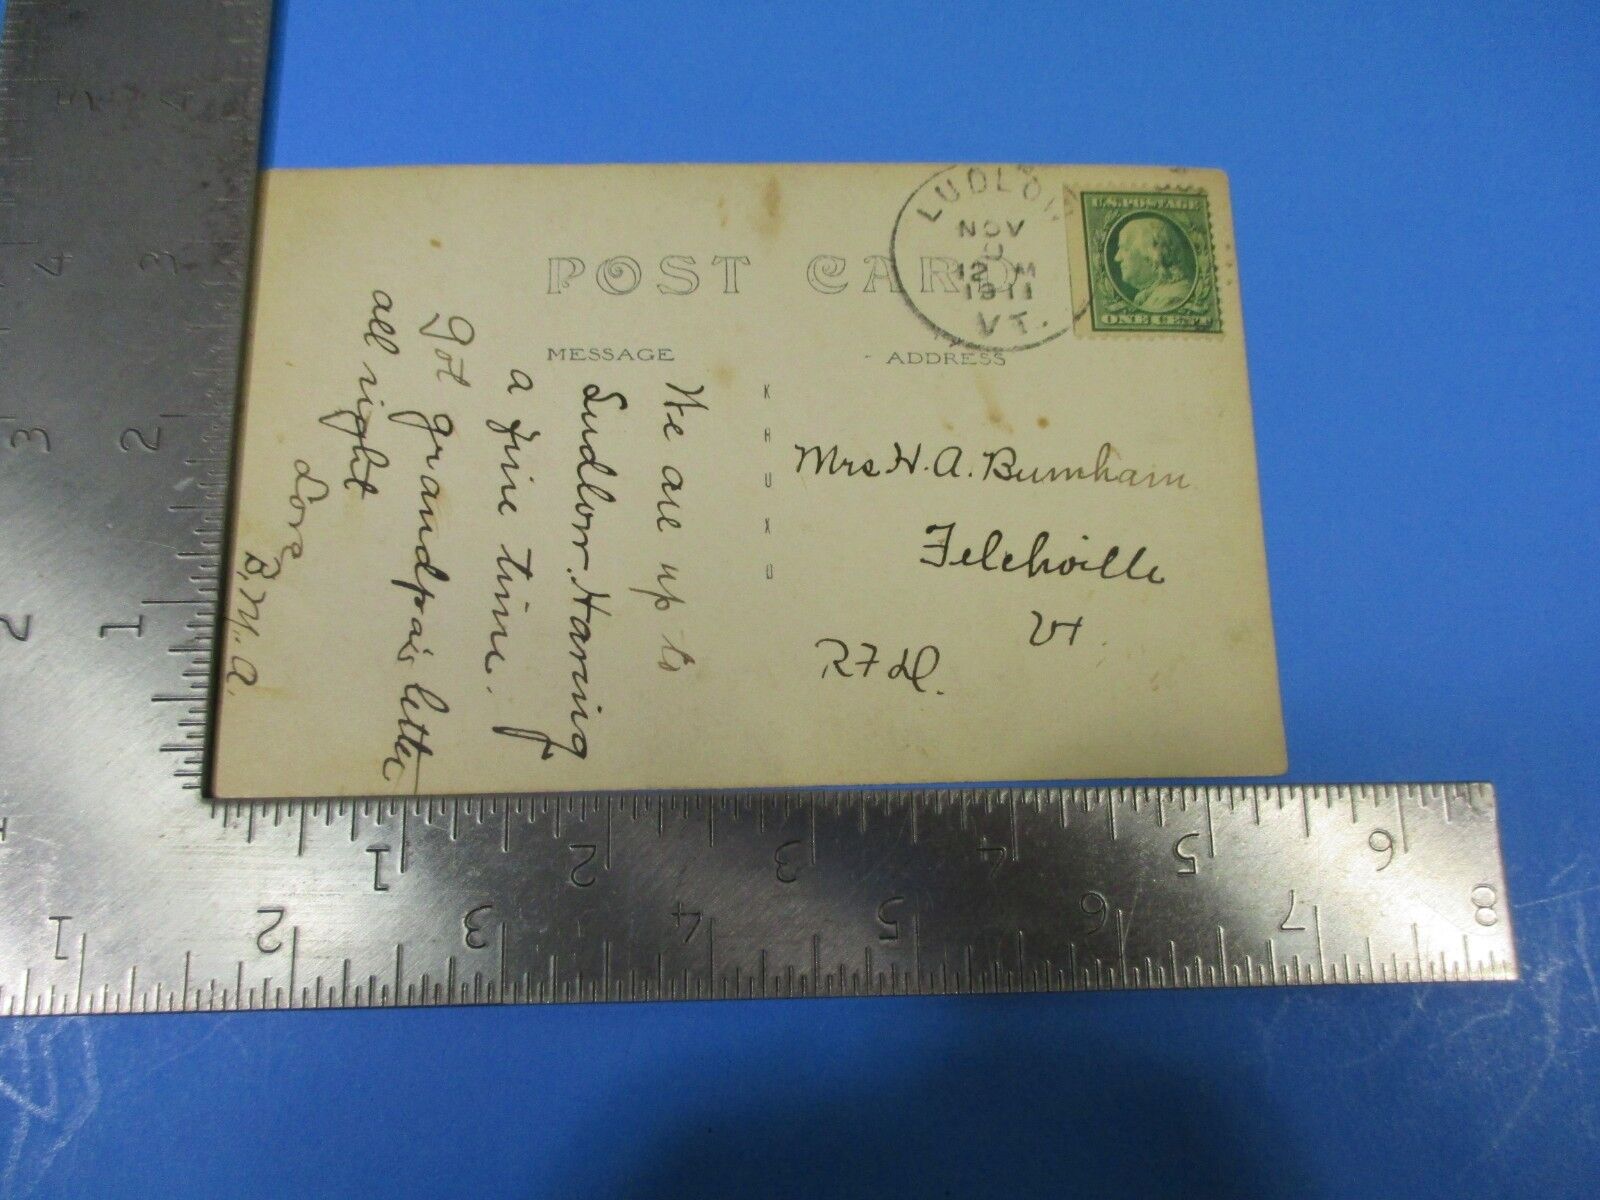 POST CARD
MESSAGE
ADDRESS
LUDLOW
NOV
12 M
1911
VT.
U.S. POSTAGE
ONE CENT
K
R
U
X
U
We are up to
Ludlow. Having
a fine time.
Got grandpa's letter
all right
Love
B. M. A.
Mrs. H. A. Burnham
Felchville
Vt.
R F D.
1 2 3 4 5 6
1 2 3 4 5 6 7 8
1 2 3 4
2 3 4